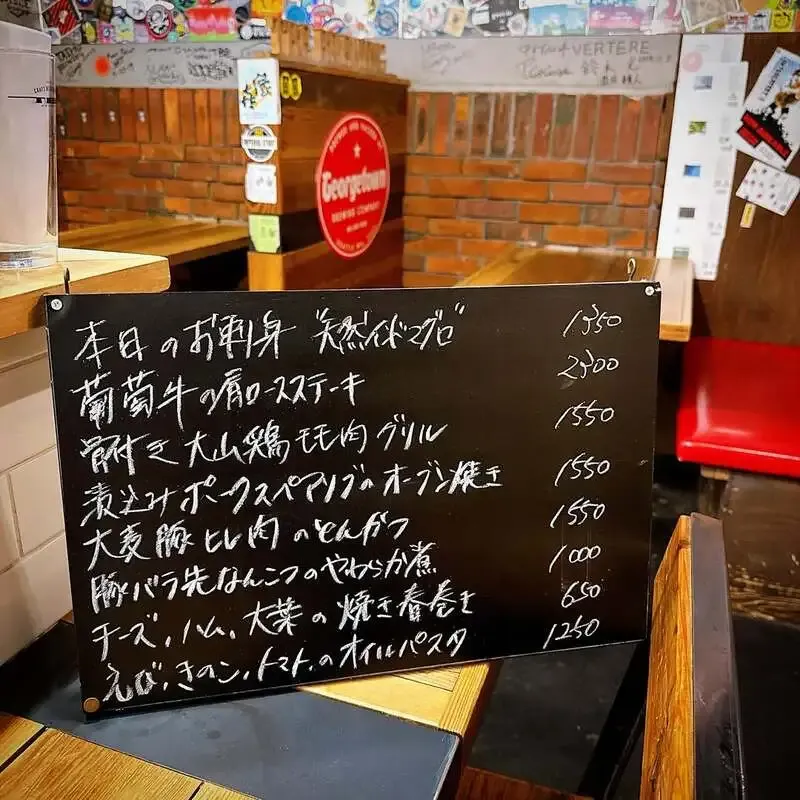 VERTERE
鈴木
Georgetown
BREWING COMPANY
本日のお刺身 天然インドマグロ 1350
葡萄牛の肩ロースステーキ 2500
骨付き大山鶏モモ肉グリル 1550
煮込みポークスペアリブのオーブン焼き 1550
大麦豚ヒレ肉のとんかつ 1550
豚バラ先なんこつのやわらか煮 1000
チーズ、ハム、大葉の焼き春巻き 650
えび、きのこ、トマト、のオイルパスタ 1250